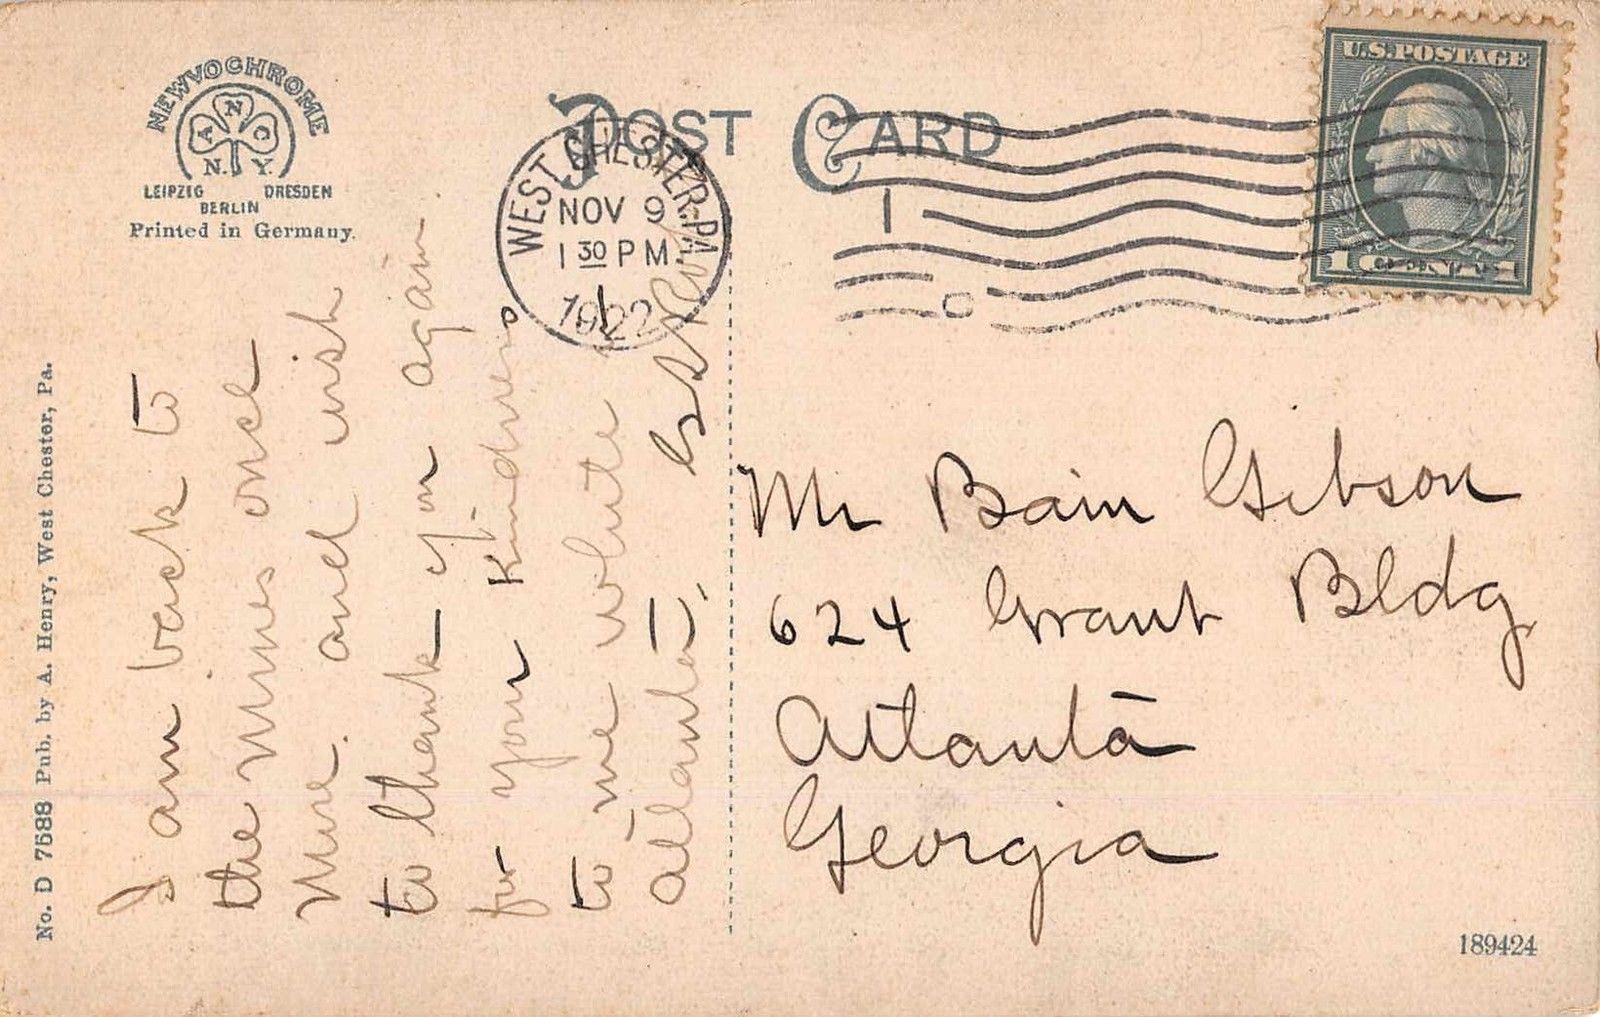 NEWVOCHROME
A N C
N. Y.
LEIPZIG DRESDEN
BERLIN
Printed in Germany.
POST CARD
WEST CHESTER, PA.
NOV 9
1 30 PM
1922
1
U.S. POSTAGE
1 CENT 1
No. D 7588 Pub. by A. Henry, West Chester, Pa.
I am back to
the mines once
more. and wish
to thank you again.
for your kindness
to me while in
Atlanta.
Mr Bain Gibson
624 Grant Bldg
Atlanta
Georgia
189424